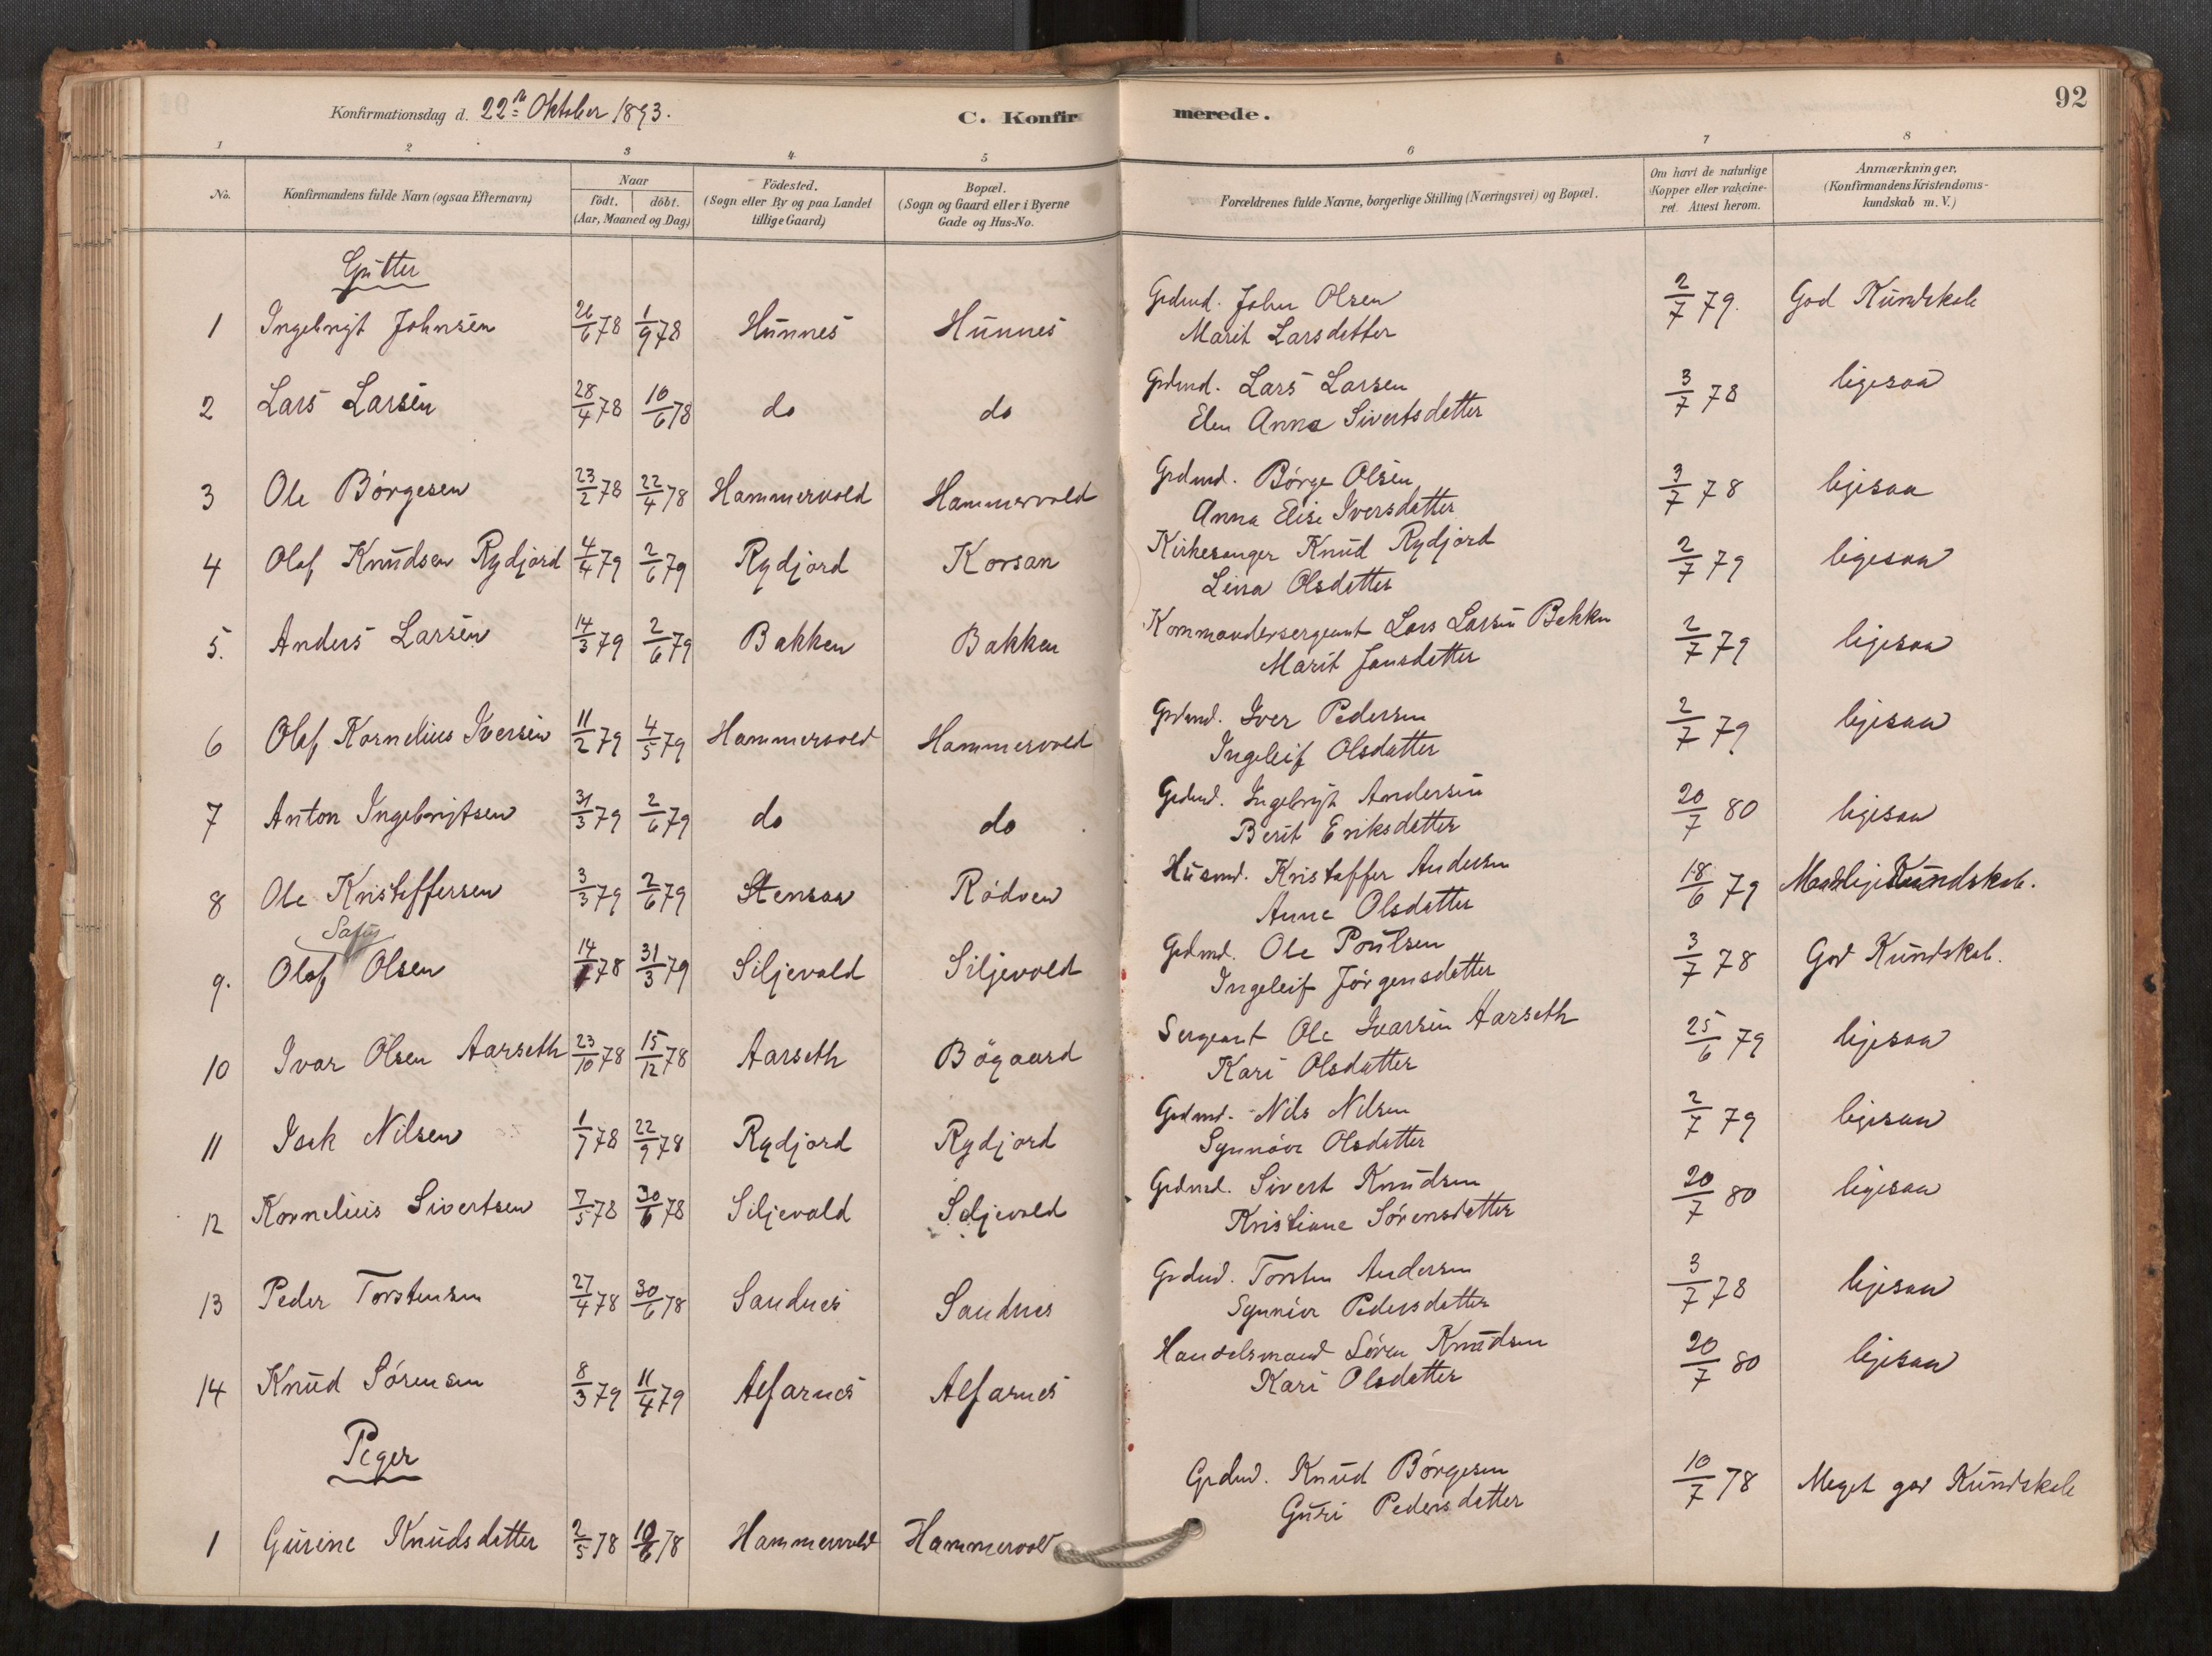 92
Konfirmationsdag d. 22de Oktober 1893.
C. Konfirmerede.
1 2 3 4 5 6 7 8
No. Konfirmandens fulde Navn (ogsaa Efternavn) Naar födt. döbt. (Aar, Maaned og Dag) Födested. (Sogn eller By og paa Landet tillige Gaard) Bopæl. (Sogn og Gaard eller i Byerne Gade og Hus-No. Forældrenes fulde Navne, borgerlige Stilling (Næringsvei) og Bopæl. Om havt de naturlige Kopper eller vakcineret. Attest herom. Anmærkninger, (Konfirmandens Kristendomskundskab m. V.)
Gutter
1 Ingebrigt Johnsen 26/6 78 1/9 78 Hunnes Hunnes Grdmd. John Olsen 2/7 79. God Kundskab
Marit Larsdatter
2 Lars Larsen 28/4 78 10/6 78 do do Grdmd. Lars Larsen 3/7 78 ligesaa
Elen Anna Sivertsdatter
3 Ole Börgesen 23/2 78 22/4 78 Hammervold Hammervold Grdmd. Börge Olsen 3/7 78 ligesaa
Anna Elise Iversdatter
4 Olaf Knudsen Rydjord 4/4 79 2/6 79 Rydjord Korsan Kirkesanger Knud Rydjord 2/7 79 ligesaa
Lina Olsdatter
5. Anders Larsen 14/3 79 2/6 79 Bakken Bakken Kommandersergeant Lars Larsen Bakken 2/7 79 ligesaa
Marit Jansdatter
6 Olaf Kornelius Iversen 11/2 79 4/5 79 Hammervold Hammervold Grdmd. Iver Pedersen 2/7 79 ligesaa
Ingeleif Olsdatter
7 Anton Ingebrigtsen 31/3 79 2/6 79 do do Grdmd. Ingebrigt Andersen 20/7 80 ligesaa
Berit Eriksdatter
8 Ole Kristoffersen 3/3 79 2/6 79 Stensaa Rödven Husmd. Kristoffer Andersen 18/6 79 Maadelige Kundskab.
Anne Olsdatter
9. Olaf Olsen 14/ 78 31/3 79 Siljevold Siljevold Grdmd. Ole Poulsen 3/7 78 God Kundskab.
Ingeleif Jörgensdatter
10 Ivar Olsen Aarseth 23/10 78 15/12 78 Aarseth Bögaard Sergeant Ole Ivarsen Aarseth 25/6 79 ligesaa
Kari Olsdatter
11 Isak Nilsen 1/7 78 22/9 78 Rydjord Rydjord Grdmd. Nils Nilsen 2/7 79 ligesaa
Synnöve Olsdatter
12 Kornelius Sivertsen 7/5 78 30/6 78 Siljevold Siljevold Grdmd. Sivert Knudsen 20/7 80 ligesaa
Kristiane Sörensdatter
13 Peder Torstensen 27/4 78 30/6 78 Sandnes Sandnes Grdmd. Torsten Andersen 3/7 78 ligesaa
Synnöve Pedersdatter
14 Knud Sörensen 8/3 79 11/4 79 Alfarnes Alfarnes Handelsmand Sören Knudsen 20/7 80 ligesaa
Kari Olsdatter
Piger
1 Gurine Knudsdatter 2/5 78 10/6 78 Hammervold Hammervold Grdmd. Knud Börgesen 10/7 78 Meget god Kundskab
Guri Pedersdatter